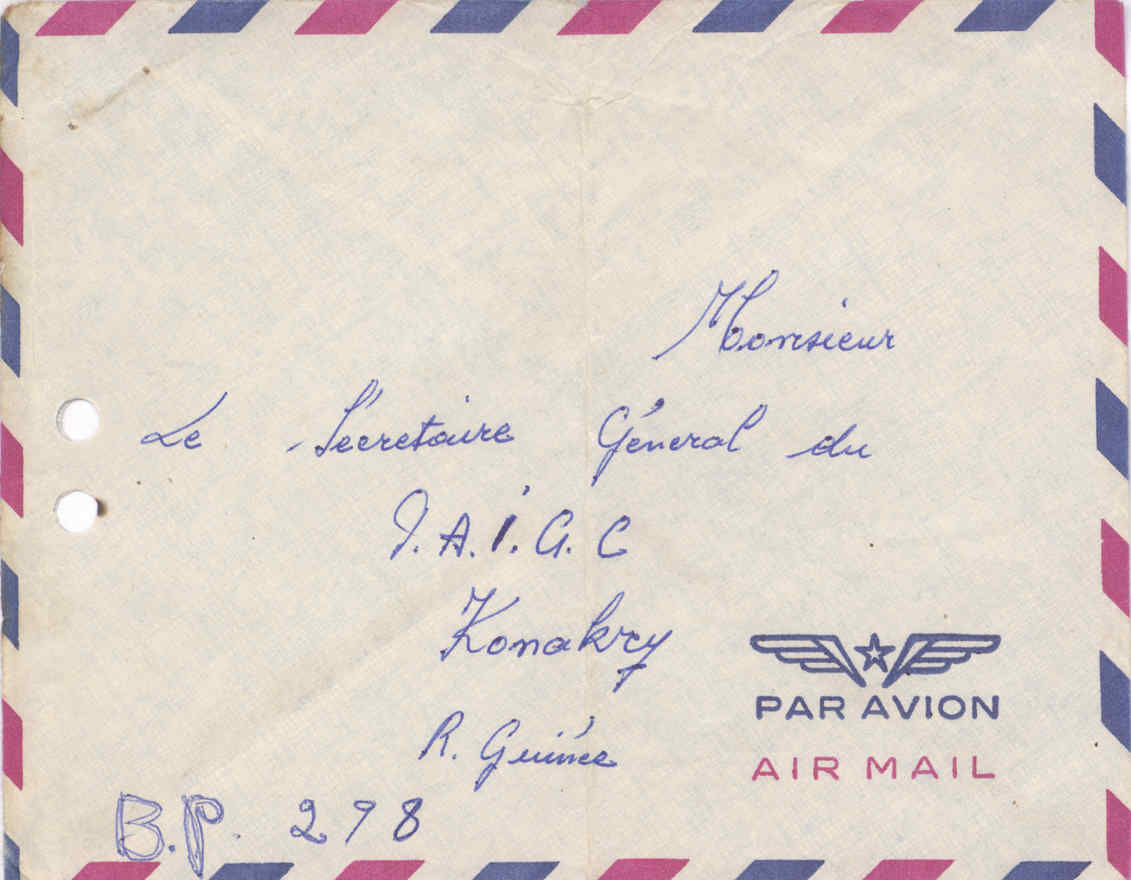 Monsieur
Le Sécretaire Géneral du
P.A.I.G.C
Konakry
R. Guinée
B.P. 298
PAR AVION
AIR MAIL